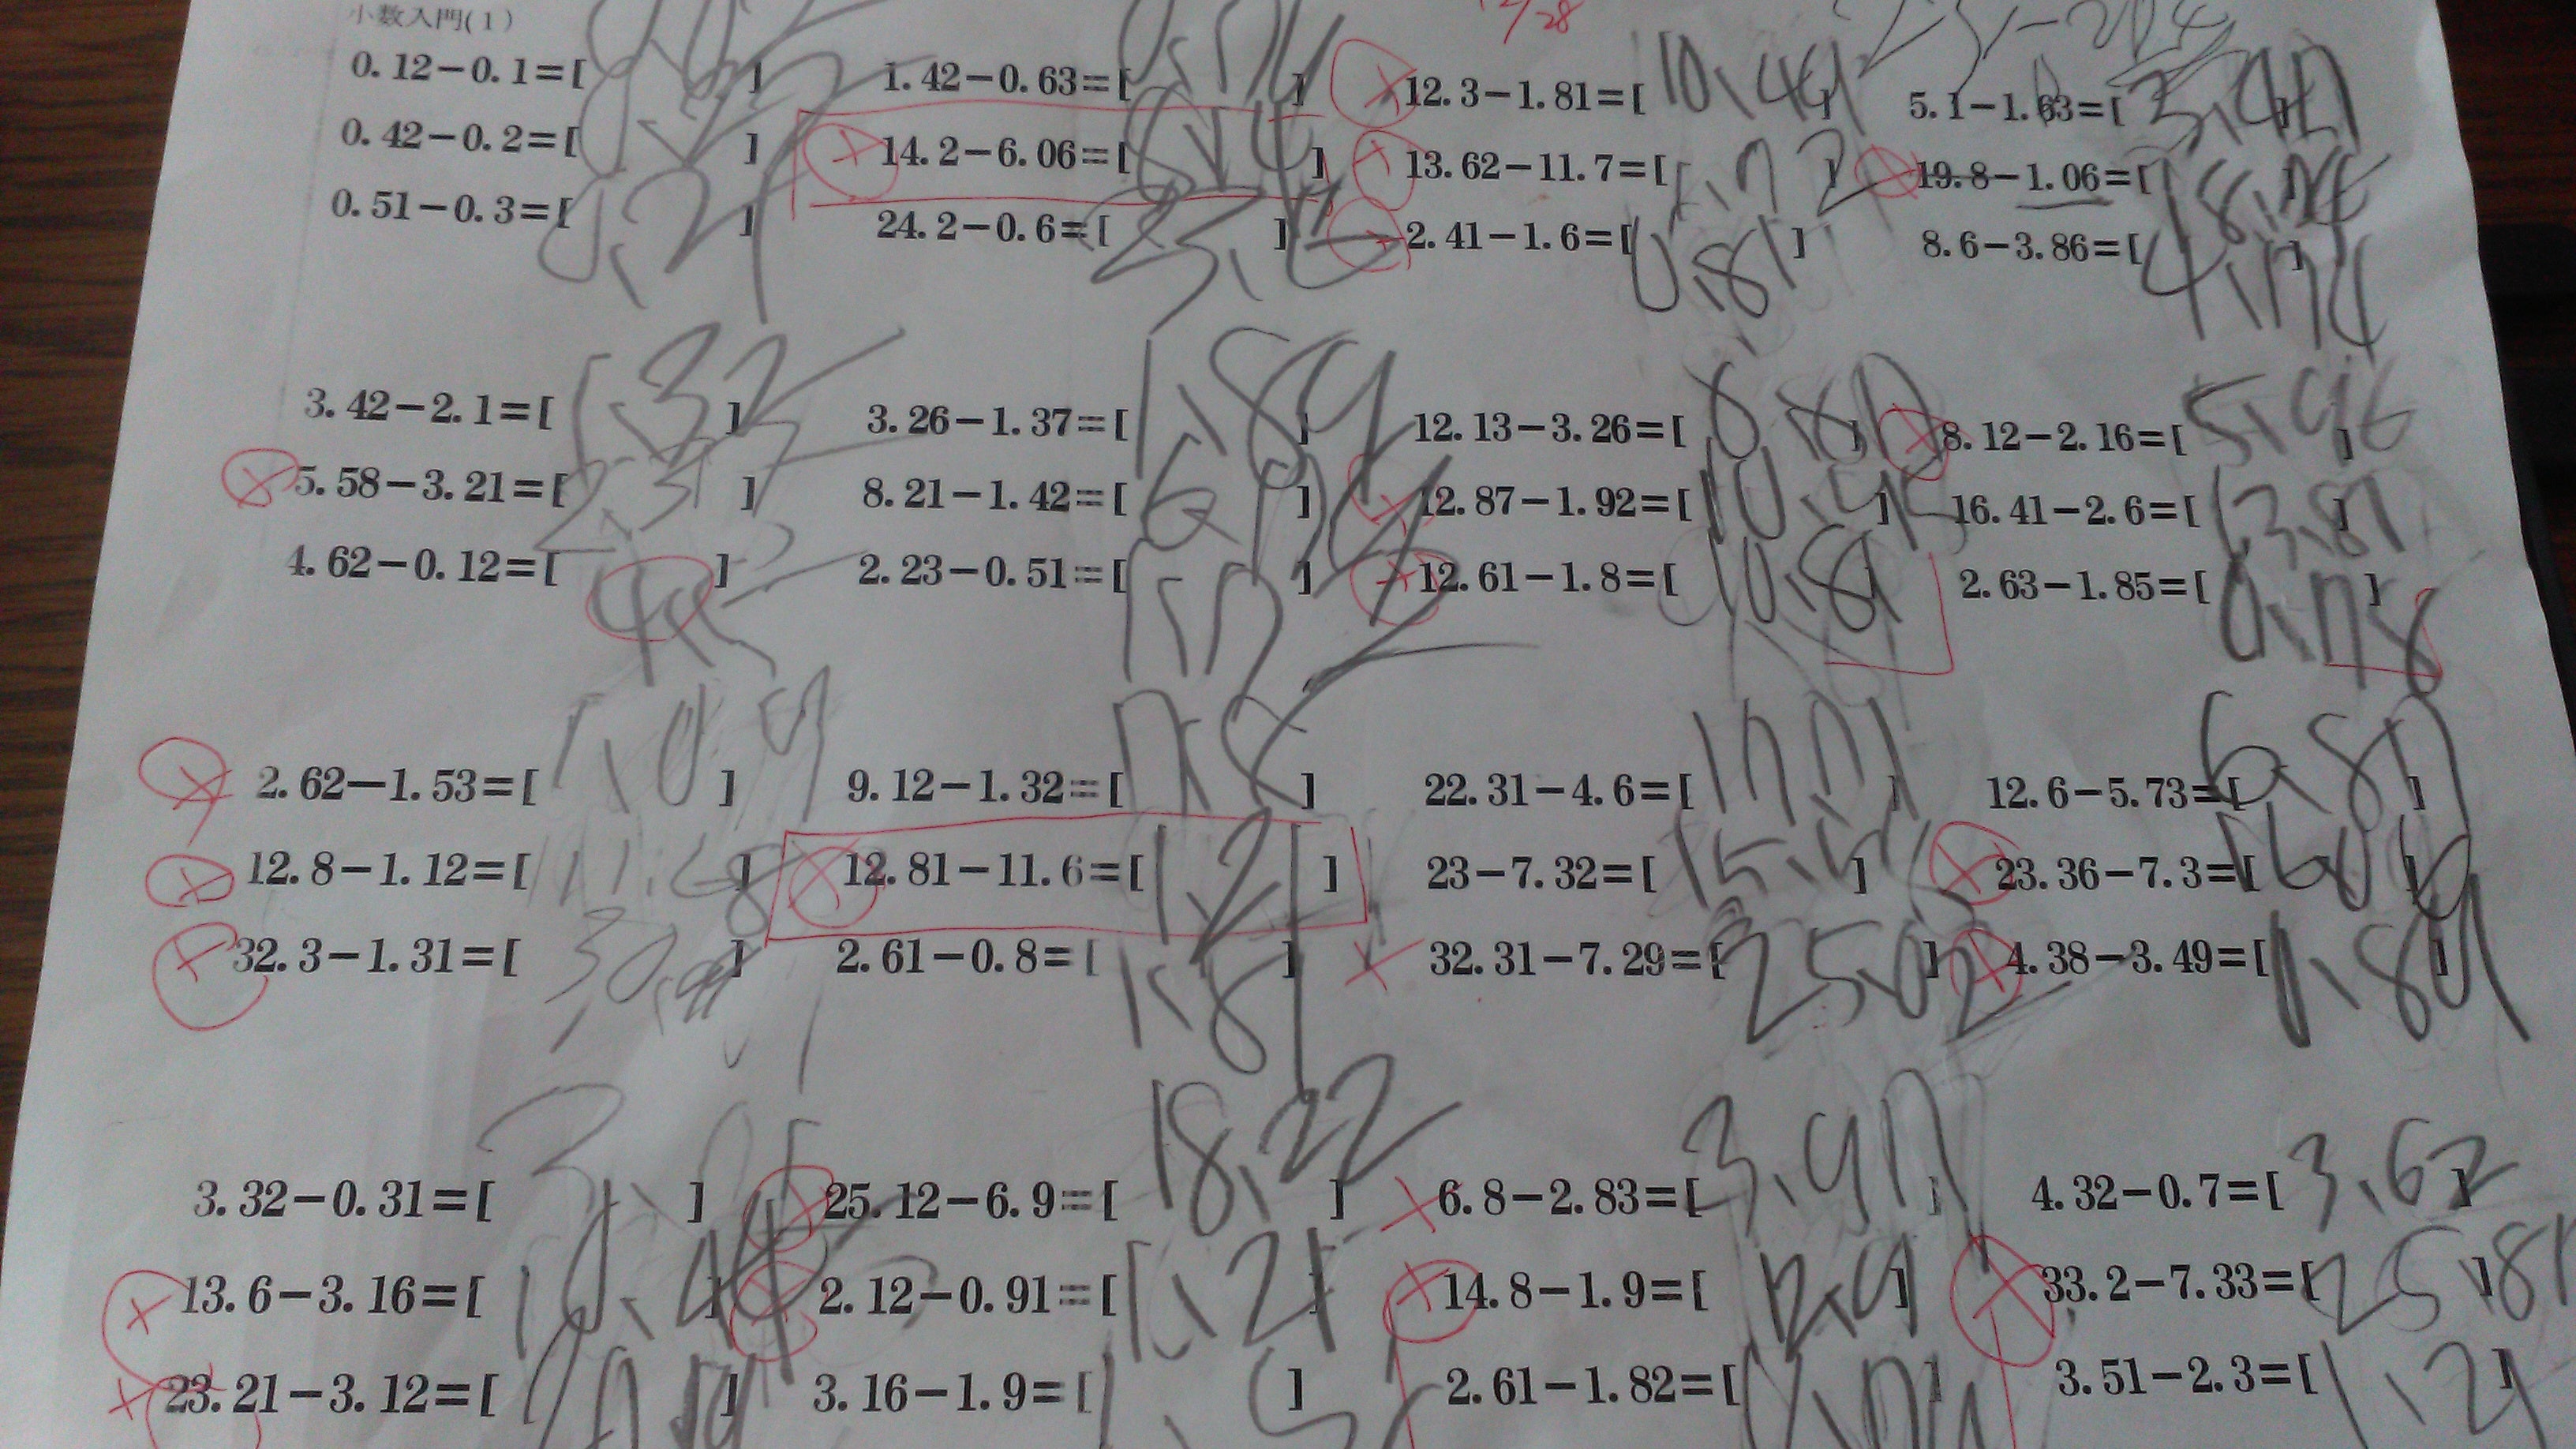 小数入門(1)
12/28
0.12-0.1=[ ] 1.42-0.63=[ ] 12.3-1.81=[10.49] 5.1-1.63=[3.47]
0.42-0.2=[ ] 14.2-6.06=[8.14] 13.62-11.7=[1.92] 19.8-1.06=[18.74]
0.51-0.3=[0.21] 24.2-0.6=[ ] 2.41-1.6=[0.81] 8.6-3.86=[4.74]
3.42-2.1=[1.32] 3.26-1.37=[1.89] 12.13-3.26=[8.87] 8.12-2.16=[5.96]
5.58-3.21=[2.37] 8.21-1.42=[6.79] 12.87-1.92=[10.95] 16.41-2.6=[13.81]
4.62-0.12=[4.5] 2.23-0.51=[1.72] 12.61-1.8=[10.81] 2.63-1.85=[0.78]
2.62-1.53=[1.09] 9.12-1.32=[7.8] 22.31-4.6=[17.71] 12.6-5.73=[6.87]
12.8-1.12=[11.68] 12.81-11.6=[1.21] 23-7.32=[ ] 23.36-7.3=[ ]
32.3-1.31=[30.99] 2.61-0.8=[1.81] 32.31-7.29=[25.02] 4.38-3.49=[0.89]
3.32-0.31=[3.01] 25.12-6.9=[18.22] 6.8-2.83=[3.97] 4.32-0.7=[3.62]
13.6-3.16=[10.44] 2.12-0.91=[1.21] 14.8-1.9=[12.9] 33.2-7.33=[ ]
23.21-3.12=[ ] 3.16-1.9=[ ] 2.61-1.82=[ ] 3.51-2.3=[1.21]